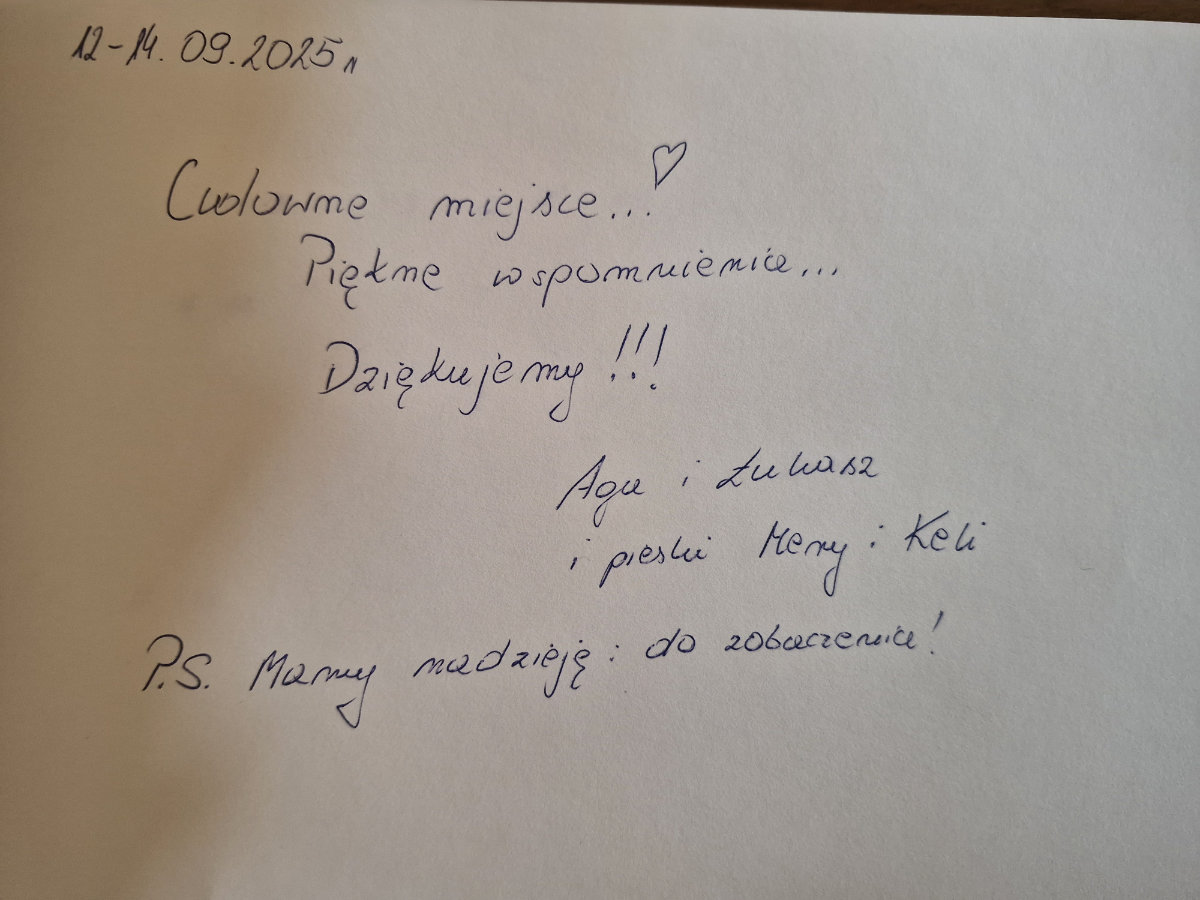 12-14.09.2025r
Cudowne miejsce... ♡
Piękne wspomnienia...
Dziękujemy!!!
Aga i Łukasz
i pieski Meny i Keli
P.S. Mamy nadzieję: do zobaczenia!